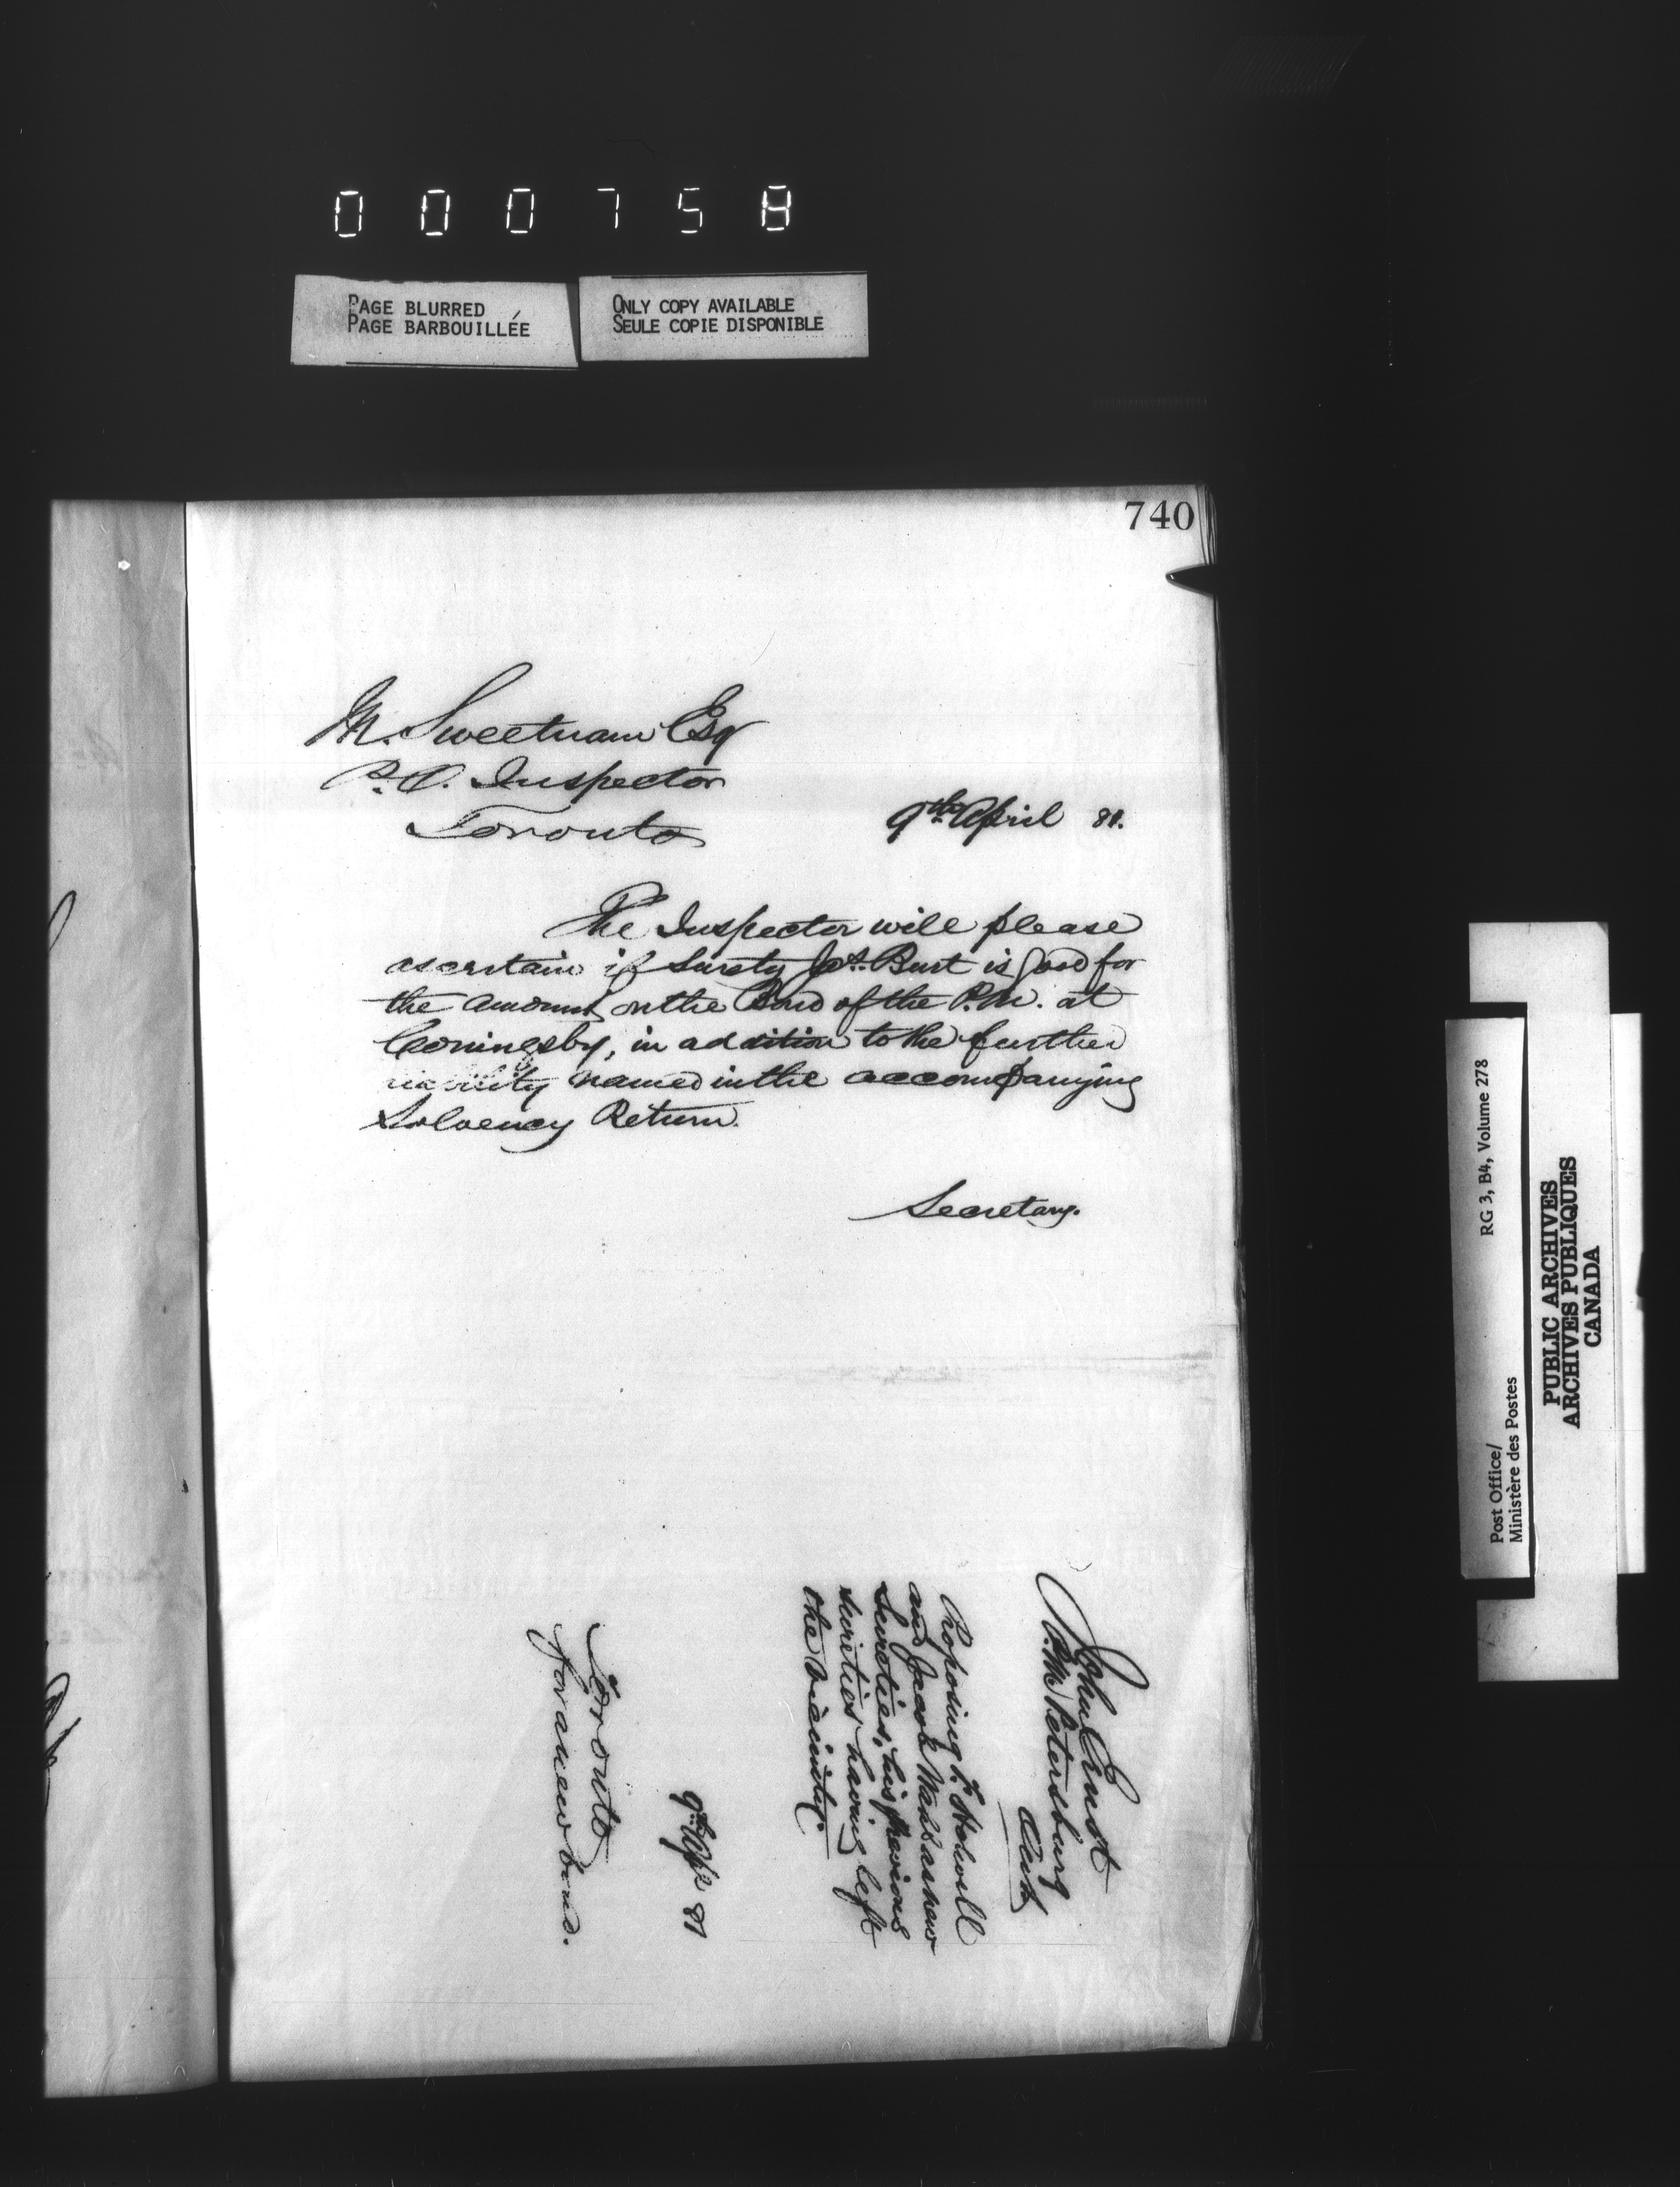 000758
PAGE BLURRED
PAGE BARBOUILLÉE
ONLY COPY AVAILABLE
SEULE COPIE DISPONIBLE
740
M. Sweetnam Esq
P.O. Inspector
Toronto
9th April 81.
The Inspector will please
ascertain if Surety Jas. Burt is good for
the amount on the Bond of the P.M. at
Coningsby, in addition to the further
liability named in the accompanying
Solvency Return.
Secretary.
John Ernst
P.M. Petersburg
Proposing F. Holwell
and Jacob
Sureties, his previous
sureties having left
the vicinity.
9th Apl 81
Toronto
for a new bond.
Post Office/
Ministère des Postes
RG 3, B4, Volume 278
PUBLIC ARCHIVES
ARCHIVES PUBLIQUES
CANADA